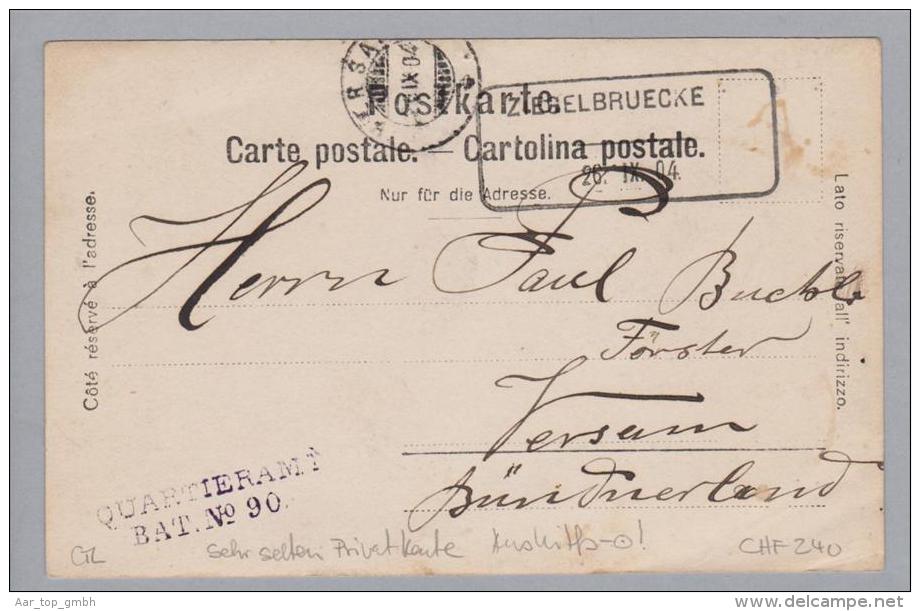 VERSAM
IX 04
Postkarte.
ZIEGELBRUECKE
Carte postale. — Cartolina postale.
26. IX. 04.
Nur für die Adresse.
Côté réservé à l'adresse.
Lato riservato all' indirizzo.
Herrn Paul
Förster
Versam
Bündnerland
QUARTIERAMT
BAT. No 90.
GL
sehr selten Privatkarte Aushilfs-O!
CHF 240
Aar_top_gmbh
delcampe.net